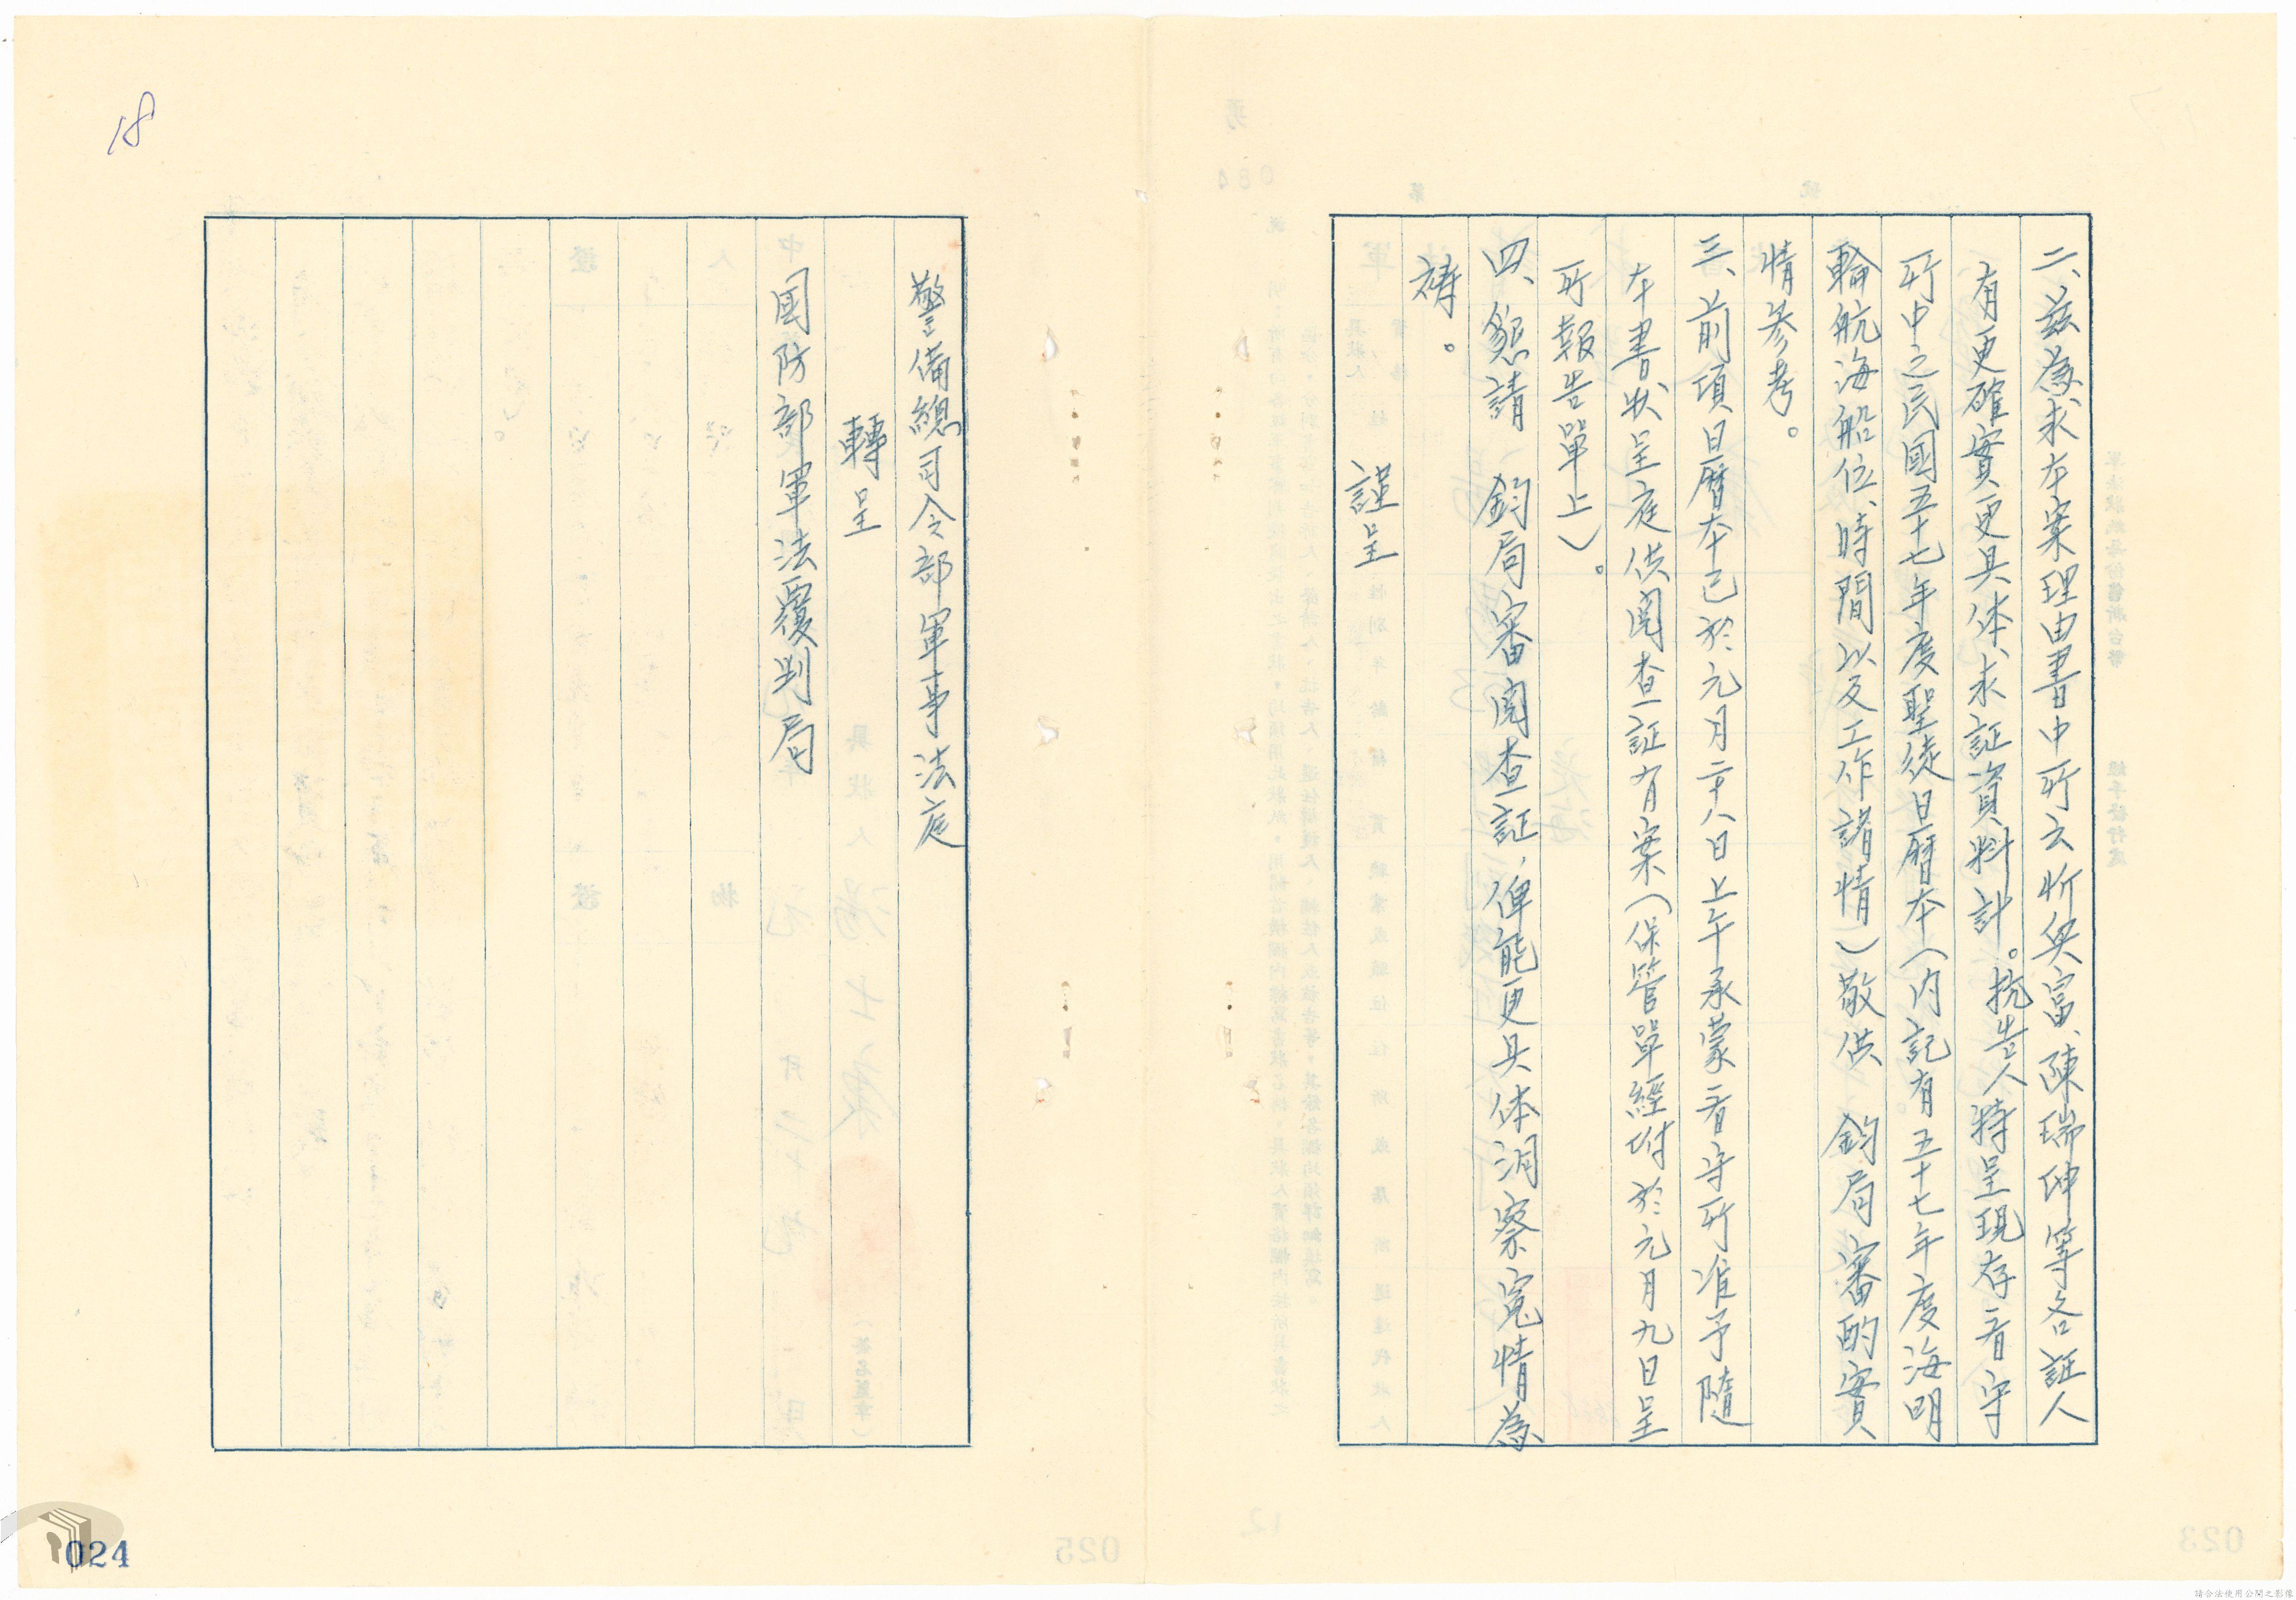 二、茲為求本案理由書中所云忻奂富、陳瑞伸等各証人
有更確實更具体求証資料計。抗告人特呈現存看守
所中之民國五十七年度聖徒日曆本（内記有五十七年度海明
輪航海船位、時間以及工作諸情）敬供　鈞局審酌實
情參考。
三、前項日曆本已於元月二十八日上午承蒙看守所准予隨
本書狀呈庭供閱查証有案（保管單經附於元月九日呈
所報告單上）。
四、懇請　鈞局審閱查証，俾能更具体洞察冤情為
禱。
謹呈
警備總司令部軍事法庭
轉呈
國防部軍法覆判局
18
024
請合法使用公開之影像